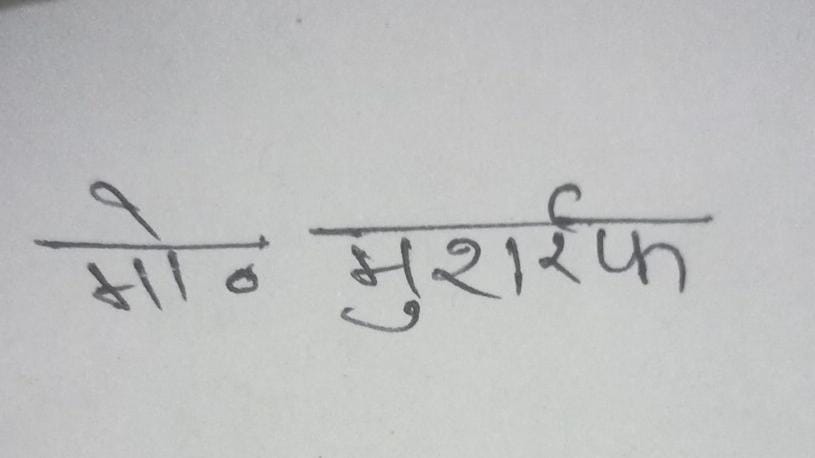 मो० मुशर्रफ